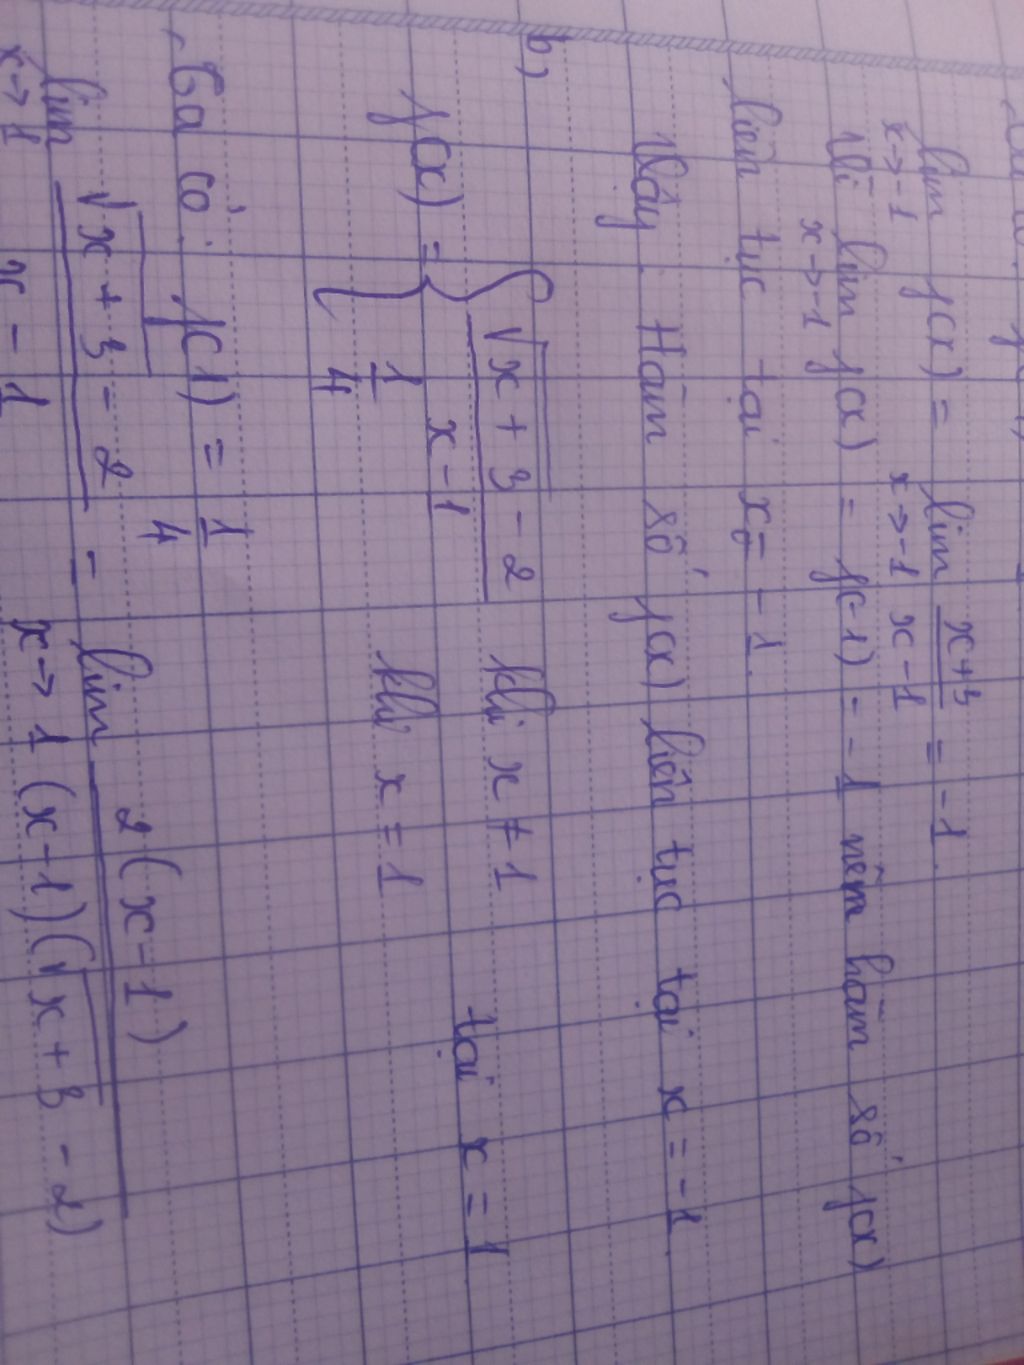 lim f(x) = lim x+3 / x-1 = -1.
x→-1 x→-1
Vì lim f(x) = f(-1) = -1 nên hàm số f(x)
x→-1
liên tục tại x₀ = -1.
Vậy Hàm số f(x) liên tục tại x = -1
b)
f(x) = { √x+3 - 2 / x-1 khi x ≠ 1 tại x = 1
1/4 khi x = 1
Ta có: f(1) = 1/4
lim √x+3 - 2 / x - 1 = lim 2(x-1) / (x-1)(√x+3 - 2)
x→1 x→1